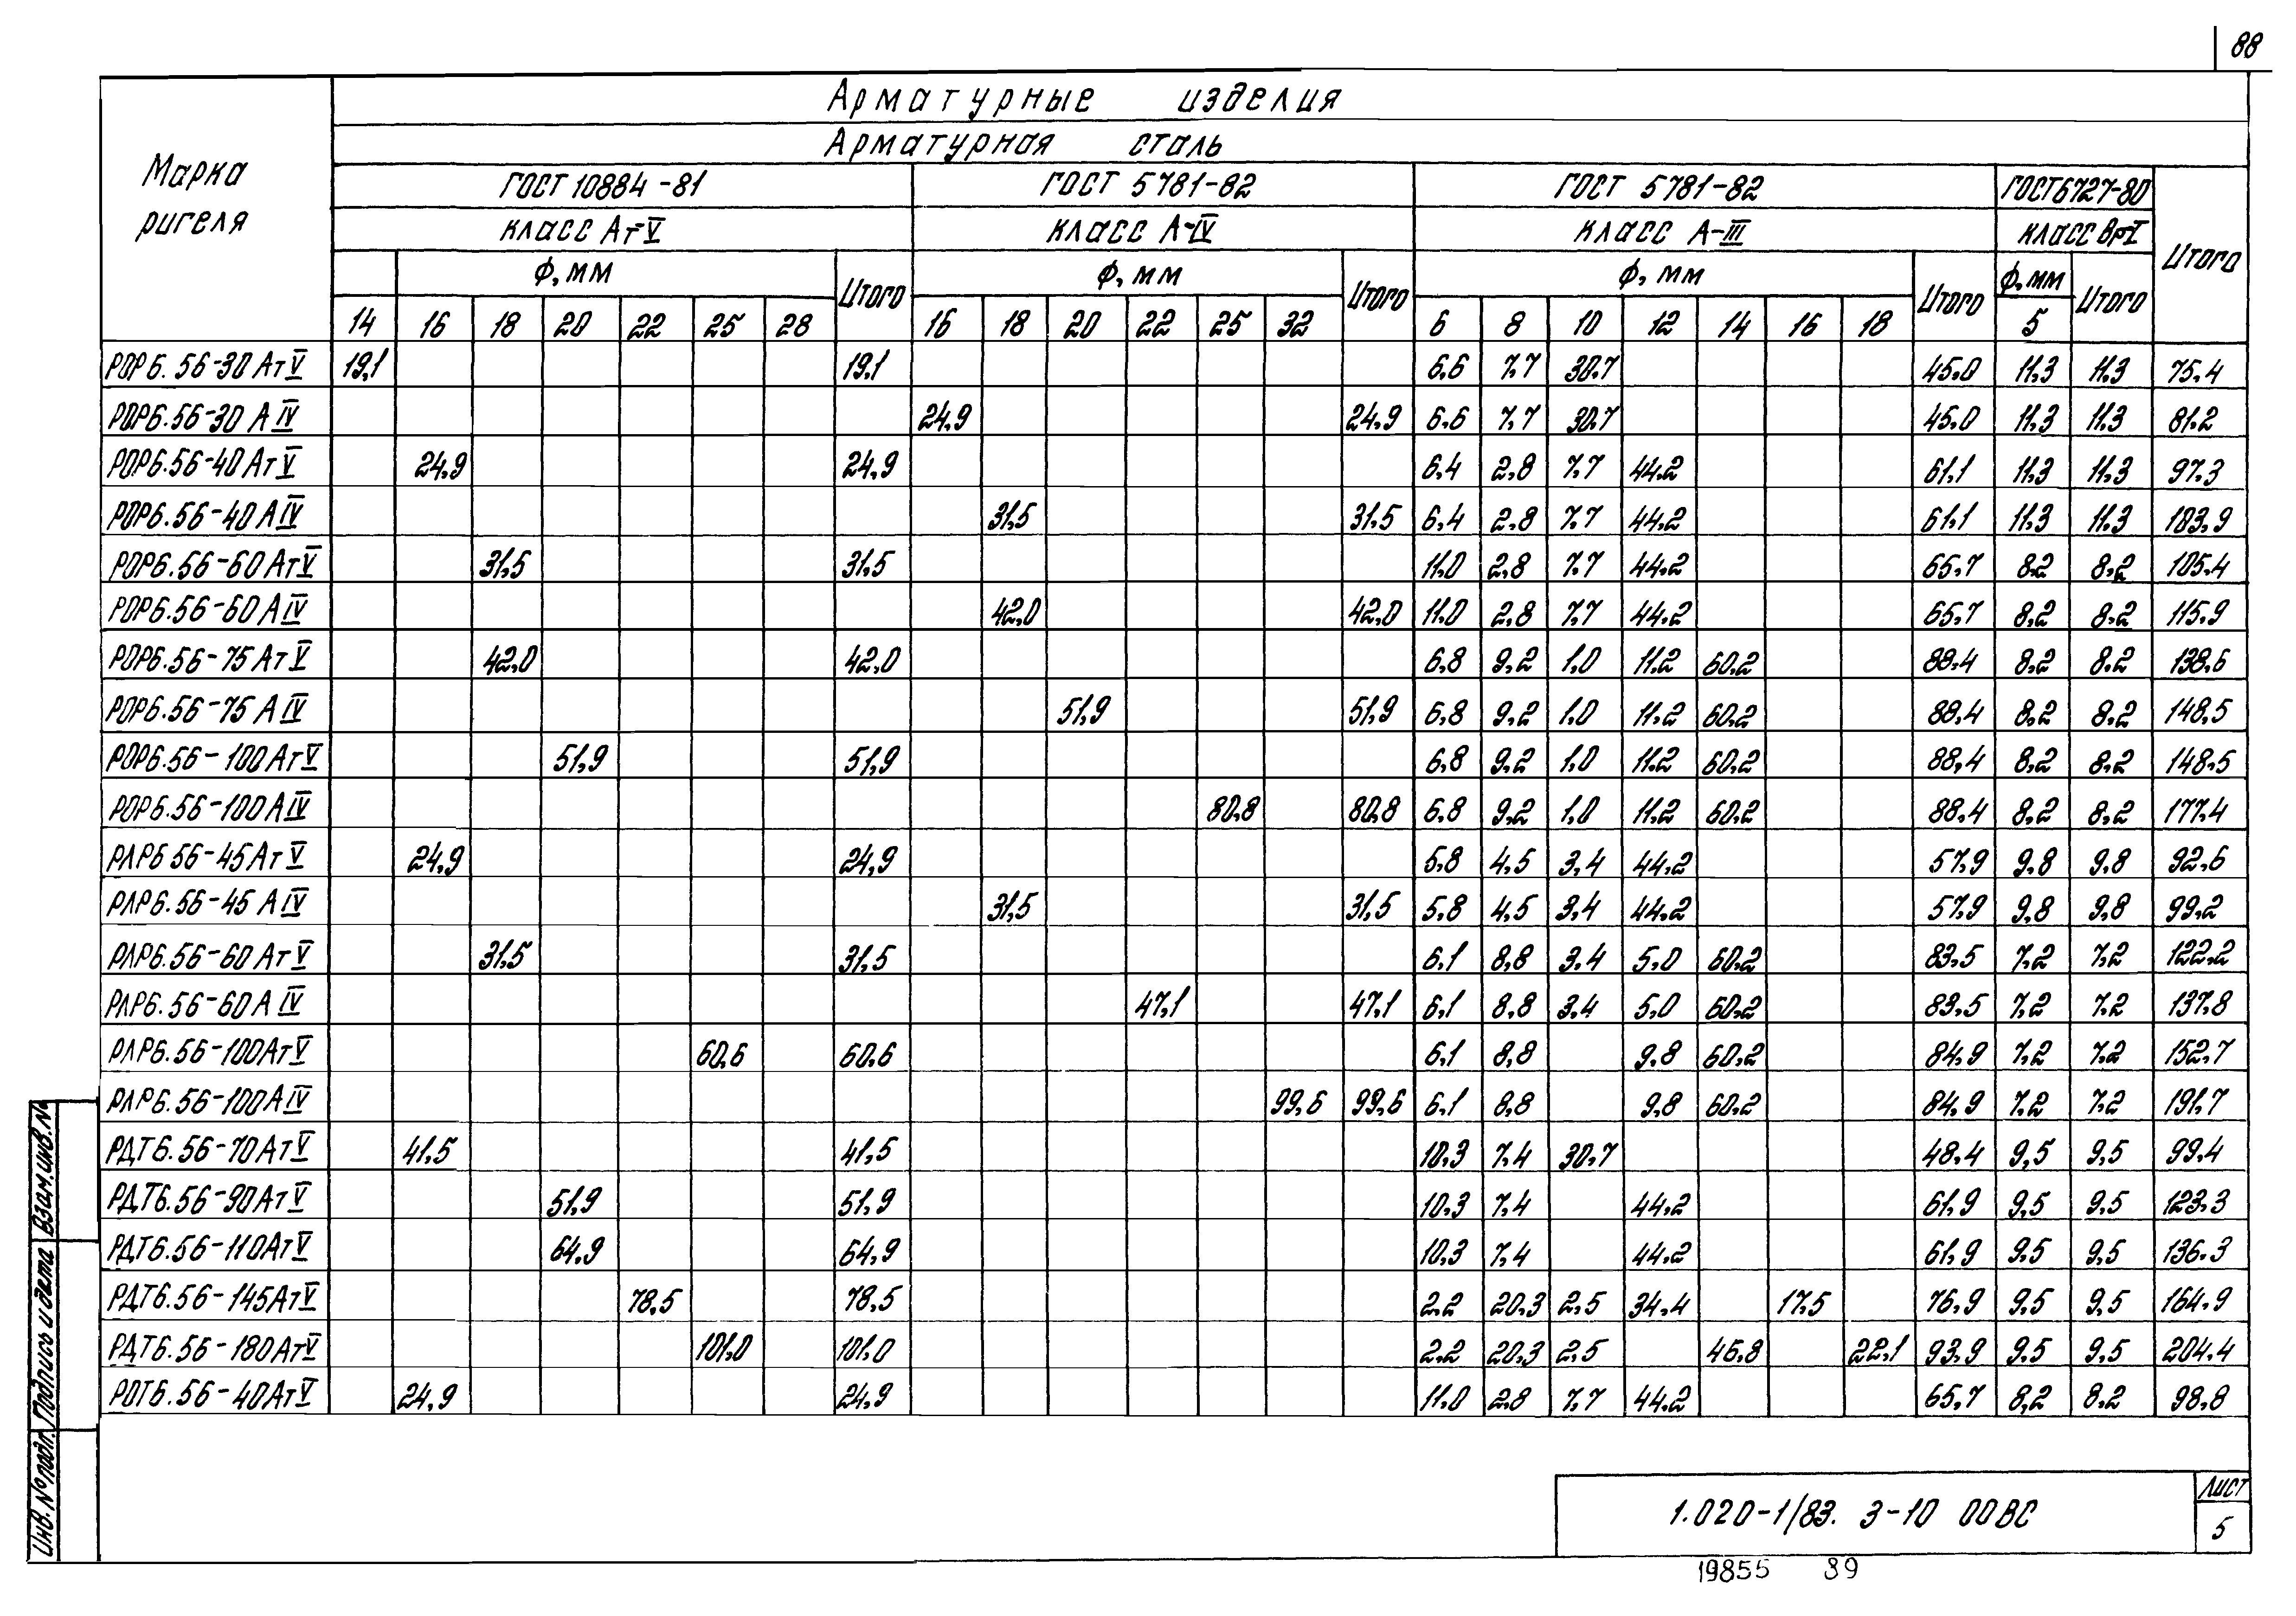 88
Арматурные изделия
Арматурная сталь
Марка ригеля
ГОСТ 10884-81 ГОСТ 5781-82 ГОСТ 5781-82 ГОСТ 6727-80 Итого
класс Ат-V класс А-IV класс А-III класс Вр-I
Ф, мм Итого Ф, мм Итого Ф, мм Итого Ф, мм Итого
14 16 18 20 22 25 28 16 18 20 22 25 32 6 8 10 12 14 16 18 5
РОР6.56-30 АтV 19,1 19,1 6,6 7,7 30,7 45,0 11,3 11,3 75,4
РОР6.56-30 АIV 24,9 24,9 6,6 7,7 30,7 45,0 11,3 11,3 81,2
РОР6.56-40 АтV 24,9 24,9 6,4 2,8 7,7 44,2 61,1 11,3 11,3 97,3
РОР6.56-40 АIV 31,5 31,5 6,4 2,8 7,7 44,2 61,1 11,3 11,3 103,9
РОР6.56-60 АтV 31,5 31,5 11,0 2,8 7,7 44,2 65,7 8,2 8,2 105,4
РОР6.56-60 АIV 42,0 42,0 11,0 2,8 7,7 44,2 65,7 8,2 8,2 115,9
РОР6.56-75 АтV 42,0 42,0 6,8 9,2 1,0 11,2 60,2 88,4 8,2 8,2 138,6
РОР6.56-75 АIV 51,9 51,9 6,8 9,2 1,0 11,2 60,2 88,4 8,2 8,2 148,5
РОР6.56-100 АтV 51,9 51,9 6,8 9,2 1,0 11,2 60,2 88,4 8,2 8,2 148,5
РОР6.56-100 АIV 80,8 80,8 6,8 9,2 1,0 11,2 60,2 88,4 8,2 8,2 177,4
РЛР6 56-45 АтV 24,9 24,9 5,8 4,5 3,4 44,2 57,9 9,8 9,8 92,6
РЛР6.56-45 АIV 31,5 31,5 5,8 4,5 3,4 44,2 57,9 9,8 9,8 99,2
РЛР6.56-60 АтV 31,5 31,5 6,1 8,8 3,4 5,0 60,2 83,5 7,2 7,2 122,2
РЛР6.56-60 АIV 47,1 47,1 6,1 8,8 3,4 5,0 60,2 83,5 7,2 7,2 137,8
РЛР6.56-100 АтV 60,6 60,6 6,1 8,8 9,8 60,2 84,9 7,2 7,2 152,7
РЛР6.56-100 АIV 99,6 99,6 6,1 8,8 9,8 60,2 84,9 7,2 7,2 191,7
РДТ6.56-70 АтV 41,5 41,5 10,3 7,4 30,7 48,4 9,5 9,5 99,4
РДТ6.56-90 АтV 51,9 51,9 10,3 7,4 44,2 61,9 9,5 9,5 123,3
РДТ6.56-110 АтV 64,9 64,9 10,3 7,4 44,2 61,9 9,5 9,5 136,3
РДТ6.56-145 АтV 78,5 78,5 2,2 20,3 2,5 34,4 17,5 76,9 9,5 9,5 164,9
РДТ6.56-180 АтV 101,0 101,0 2,2 20,3 2,5 46,8 22,1 93,9 9,5 9,5 204,4
РОТ6.56-40 АтV 24,9 24,9 11,0 2,8 7,7 44,2 65,7 8,2 8,2 98,8
Инв. № подл. Подпись и дата Взам. инв. №
1.020-1/83. 3-10 00ВС
Лист
5
19855 89